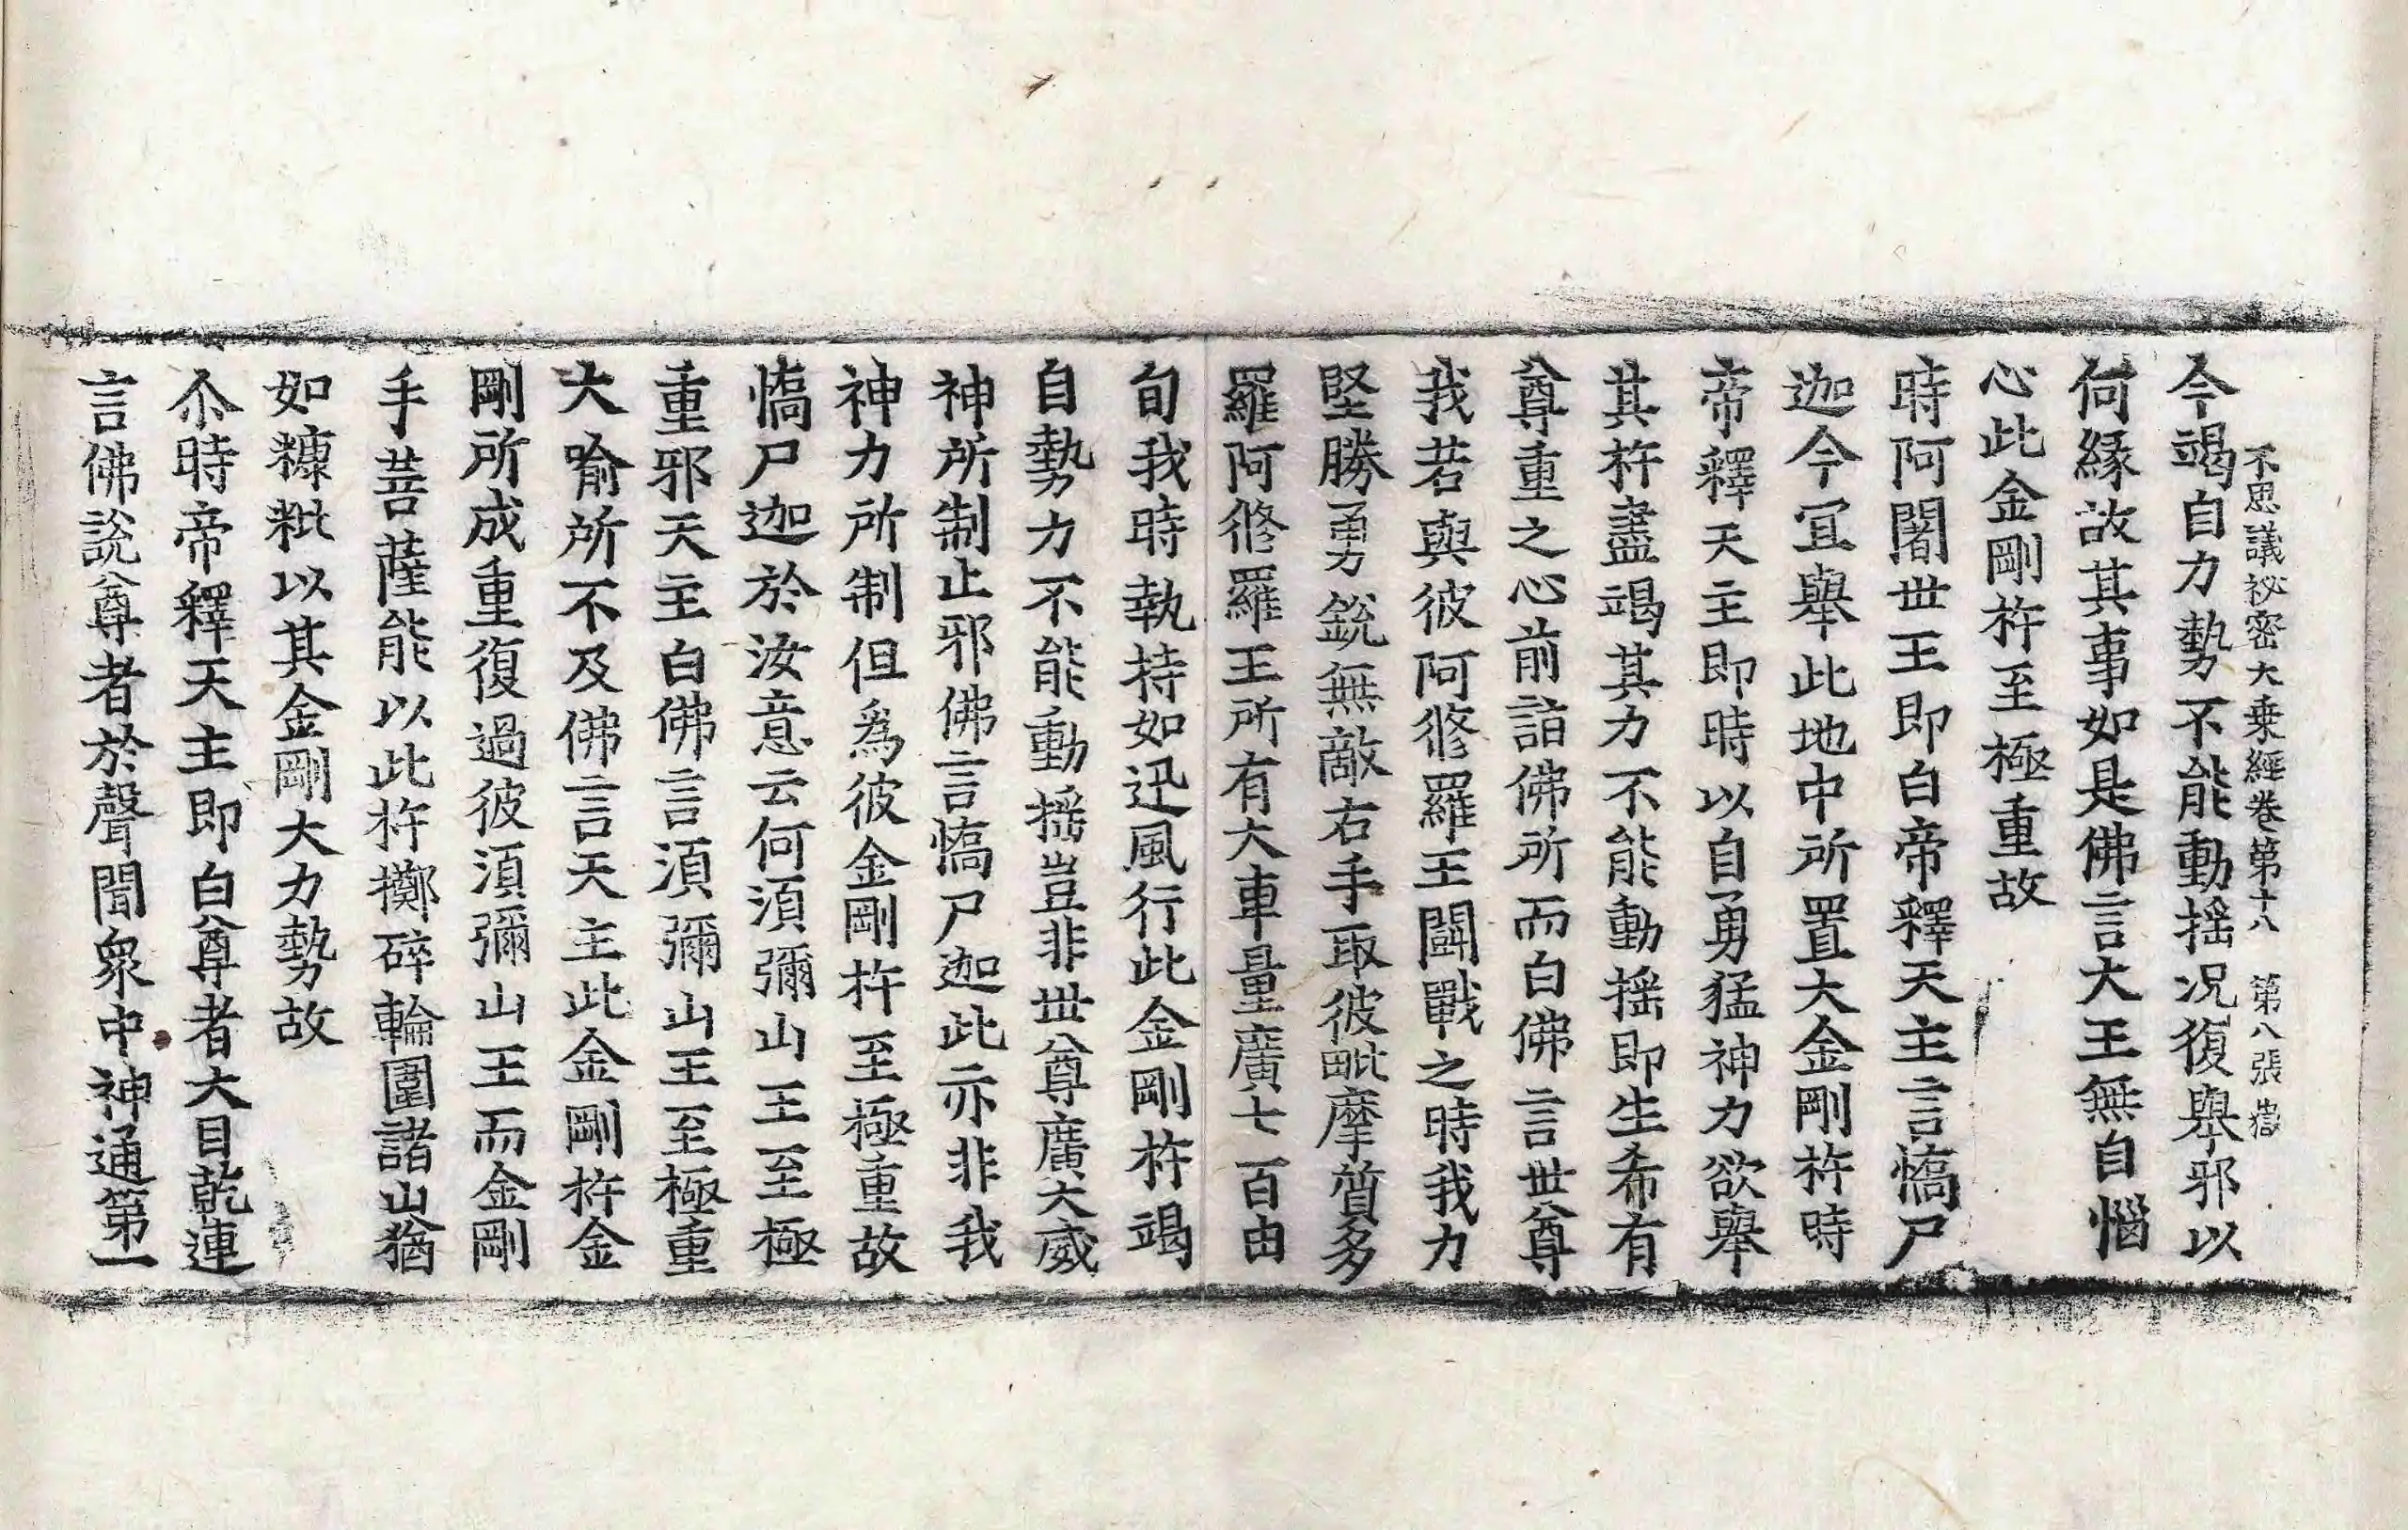 不思議祕密大乗經卷第十八 第八張
今竭自力勢不能動揺况復舉邪以
何緣故其事如是佛言大王無自惱
心此金剛杵至極重故
時阿闍世王即白帝釋天主言憍尸
迦今冝舉此地中所置大金剛杵時
帝釋天主即時以自勇猛神力欲舉
其杵盡竭其力不能動揺即生希有
尊重之心前詣佛所而白佛言世尊
我若與彼阿修羅王鬪戰之時我力
堅勝勇銳無敵右手取彼毗摩質多
羅阿修羅王所有大車量廣七百由
旬我時執持如迅風行此金剛杵竭
自勢力不能動揺豈非世尊廣大威
神所制止邪佛言憍尸迦此亦非我
神力所制但爲彼金剛杵至極重故
憍尸迦於汝意云何須彌山王至極
重邪天主白佛言須彌山王至極重
大喻所不及佛言天主此金剛杵金
剛所成重復過彼須彌山王而金剛
手菩薩能以此杵擲碎輪圍諸山猶
如糠粃以其金剛大力勢故
尒時帝釋天主即白尊者大目乾連
言佛說尊者於聲聞衆中神通第一